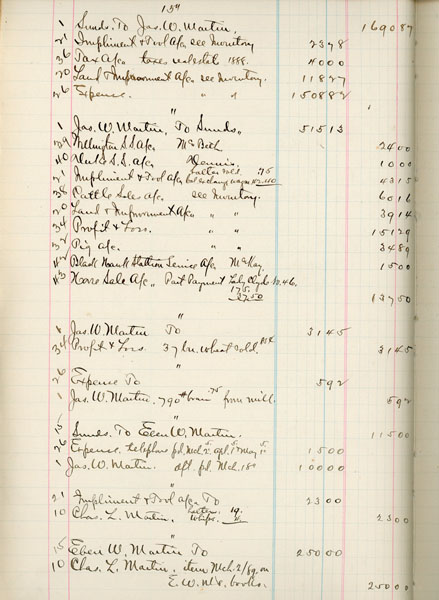 15th
1 Sunds. To Jas. W. Martin. 169087
21 Impliment & Tool A/c, see Inventory 2378
36 Tax A/c. taxes real estate 1888. 4000
20 Land & Improvement A/c. see Inventory. 11827
26 Expense. " " 150882
"
1 Jas. W. Martin, To Sunds. 51513
Wellington S.S. A/c. McBeth 2400
110 S.S. A/c. Dennis. 1000
21 Impliment & Tool A/c 4315
38 Cattle Sale A/c. see Inventory. 6016
20 Land & Improvement A/c. " " 3914
34 Profit & Loss. " " 15129
32 Pig A/c. " " 3489
112 Black Hawk Stallion Service A/c. McKay. 1500
113 Horse Sale A/c. Part Payment Lady Clyde 20.46.
175
37.50 13750
"
1 Jas. W. Martin To 3145
34 Profit & Loss 37 bu. wheat sold. 85¢ 3145
"
26 Expense To 592
1 Jas. W. Martin. 790# bran 75 from mill. 592
"
15 Sunds. To Eben W. Martin. 11500
26 Expense. telephone pd. Mch. 2. 5 apl. 1. 5 May 1. 5 1500
1 Jas. W. Martin. dft. pd. Mch. 18th 10000
"
21 Impliment & Tool A/c. To 2300
10 Chas. L. Martin. 2300
"
15 Eben W. Martin To 25000
10 Chas. L. Martin. item Mch. 2/89 on
E. W. M's. books. 25000